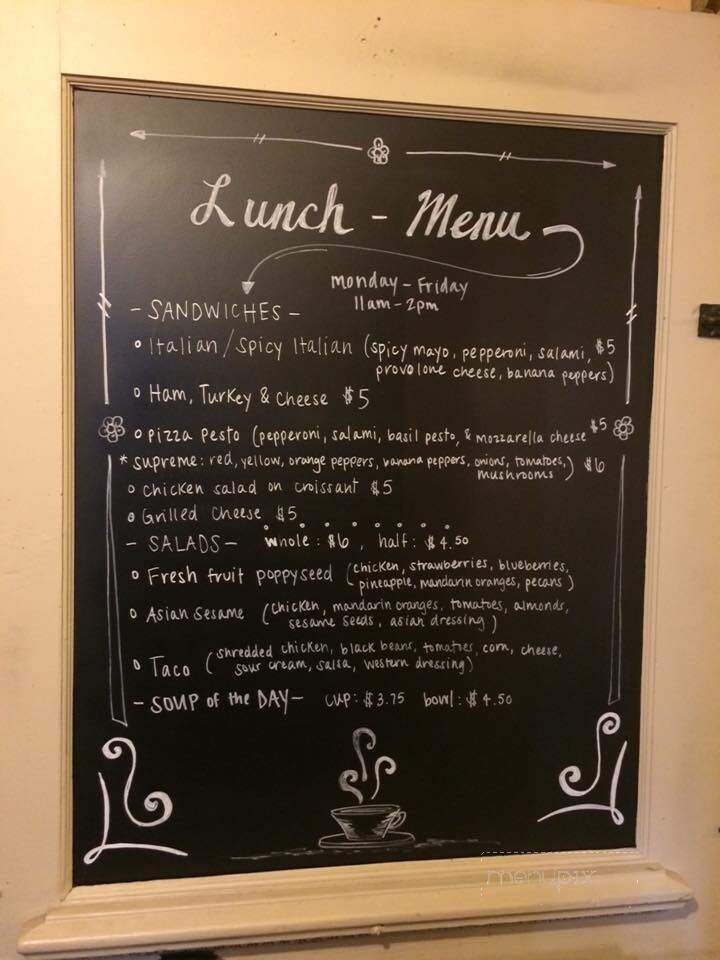 Lunch - Menu
Monday - Friday
11am - 2pm
- SANDWICHES -
o Italian / Spicy Italian (spicy mayo, pepperoni, salami, $5
provolone cheese, banana peppers)
o Ham, Turkey & Cheese $5
o Pizza Pesto (pepperoni, salami, basil pesto, & mozzarella cheese $5
* Supreme: red, yellow, orange peppers, banana peppers, onions, tomatoes,) $6
mushrooms
o Chicken salad on croissant $5
o Grilled Cheese $5
- SALADS - whole: $6, half: $4.50
o Fresh fruit poppyseed (chicken, strawberries, blueberries,
pineapple, mandarin oranges, pecans)
o Asian Sesame (chicken, mandarin oranges, tomatoes, almonds,
sesame seeds, asian dressing)
o Taco (shredded chicken, black beans, tomatoes, corn, cheese,
sour cream, salsa, western dressing)
- SOUP of the DAY - cup: $3.75 bowl: $4.50
menupix